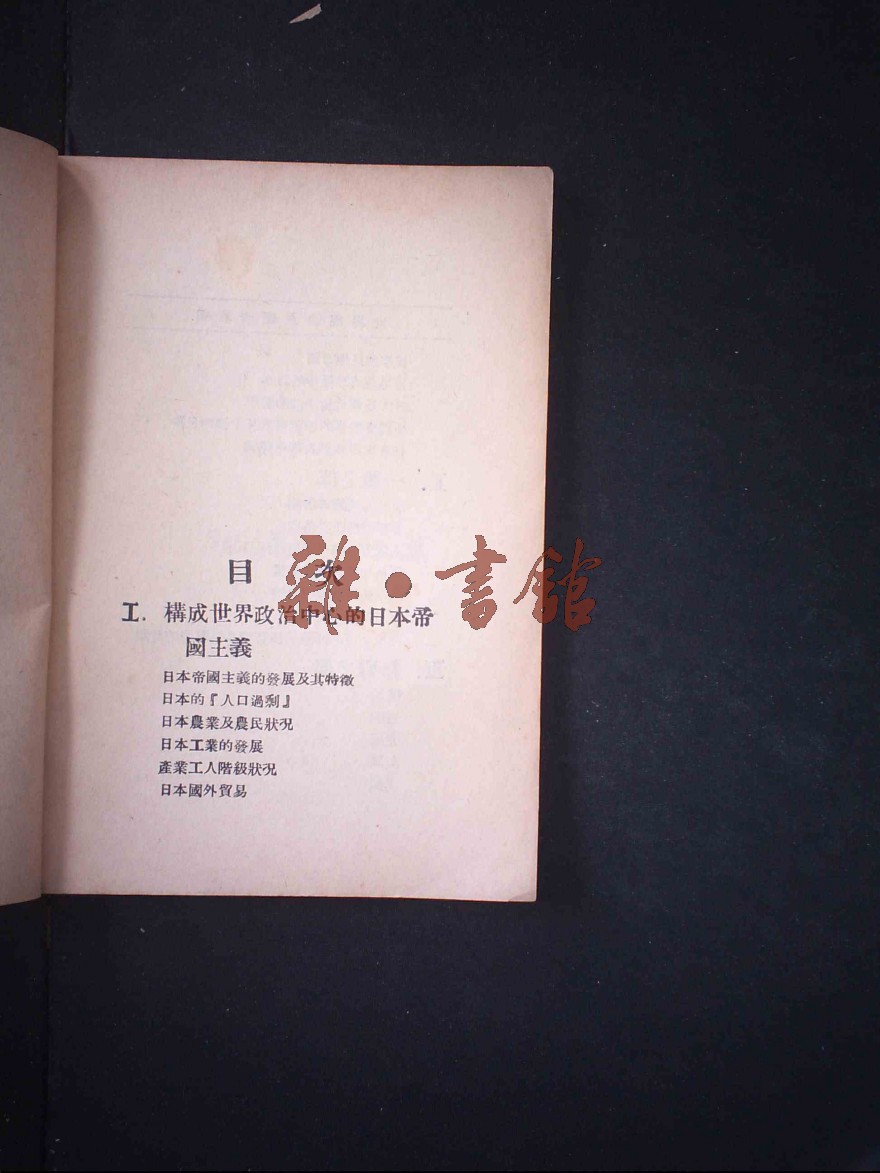 目 次
I. 構成世界政治中心的日本帝
國主義
日本帝國主義的發展及其特徵
日本的『人口過剩』
日本農業及農民狀况
日本工業的發展
產業工人階級狀况
日本國外貿易
雜·書館